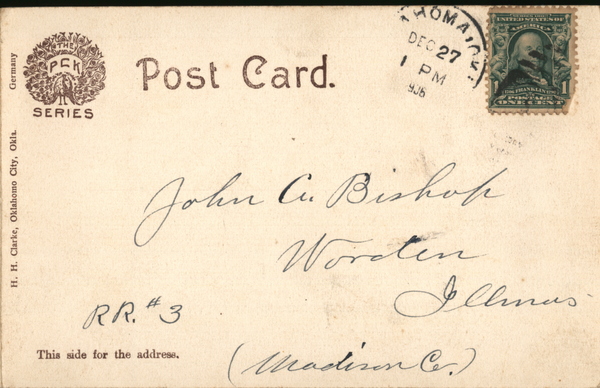 THE
P.C.K
SERIES
Post Card.
H. H. Clarke, Oklahomo City, Okla. Germany
HOMA, OK
DEC 27
1 PM
906
UNITED STATES OF
AMERICA
1 FRANKLIN 1
POSTAGE
ONE CENT
John A. Bishop
Worden
Illinois
RR. #3
This side for the address.
(Madison Co.)